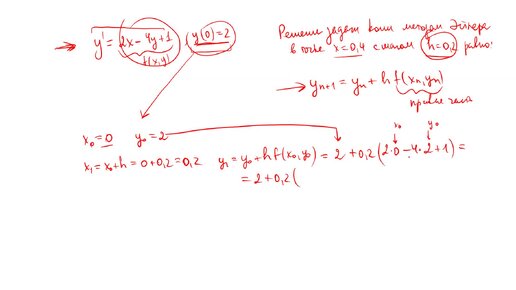 y' = 2x - 4y + 1
f(x,y)
y(0) = 2
Решение задачи Коши методом Эйлера
в точке x = 0,4 с шагом h = 0,2 равно:
y_{n+1} = y_n + h f(x_n, y_n)
правая часть
x_0 = 0 y_0 = 2
x_0 y_0
x_1 = x_0 + h = 0 + 0,2 = 0,2 y_1 = y_0 + h f(x_0, y_0) = 2 + 0,2 (2·0 - 4·2 + 1) =
= 2 + 0,2 (